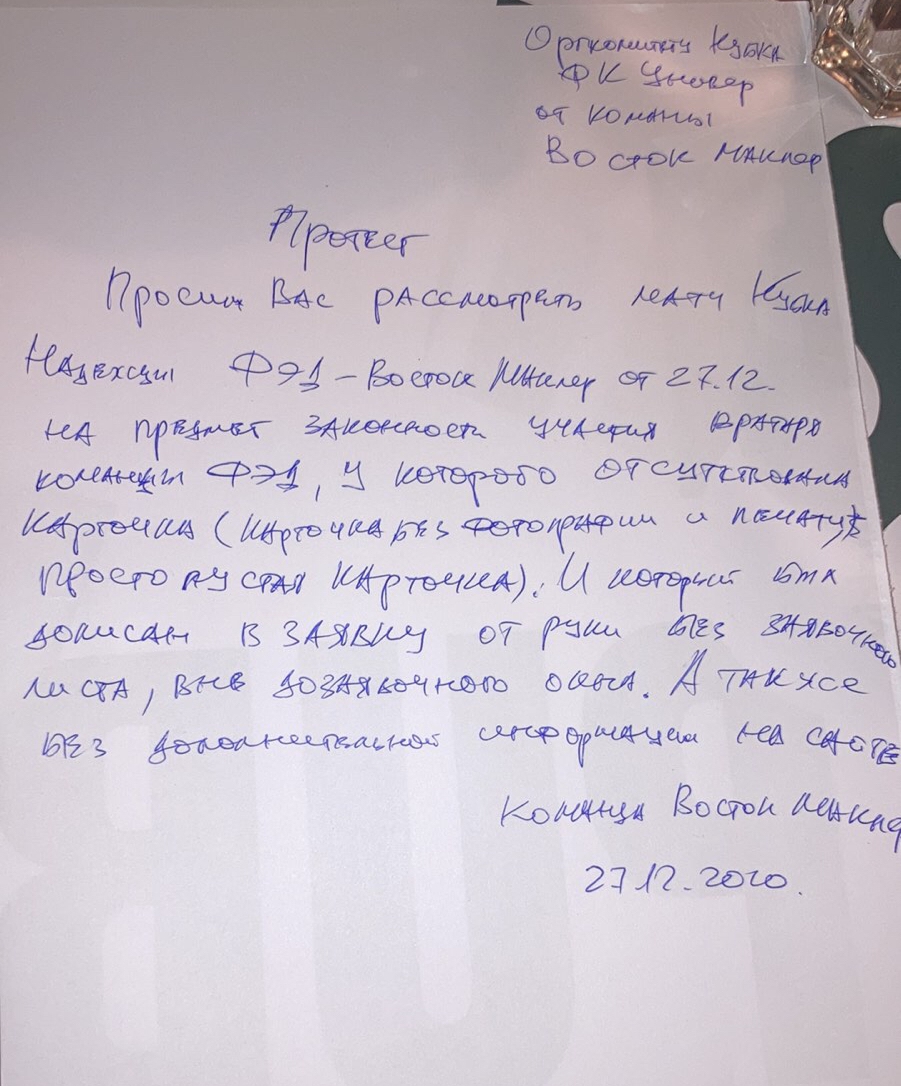 Оргкомитету Кубка
ФК Универ
от команды
Восток Маклер
Протест
Просим Вас рассмотреть матч Кубка
Надежды ФЭ1 – Восток Маклер от 27.12.
на предмет законности участия вратаря
команды ФЭ1, у которого отсутствовала
карточка (карточка без фотографии и печати,
просто пустая карточка). И который был
дописан в заявку от руки без заявочного
листа, вне дозаявочного окна. А также
без дополнительной информации на сайте
Команда Восток Маклер
27.12.2020.